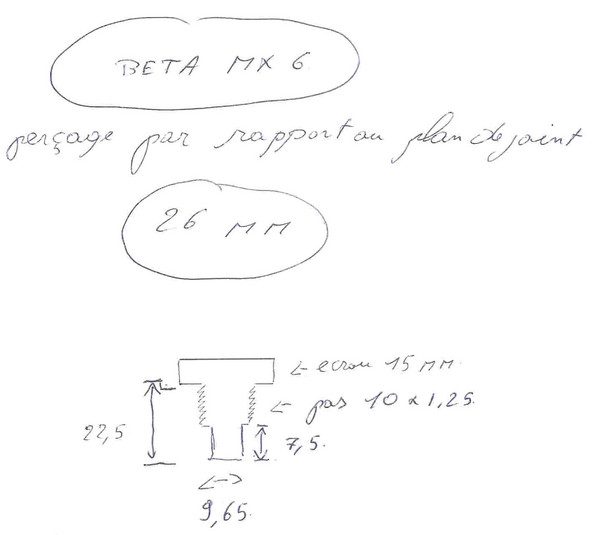 BETA MX 6
perçage par rapport au plan de joint
26 MM
← ecrou 15 MM
← pas 10 x 1,25.
22,5
7,5.
9,65.